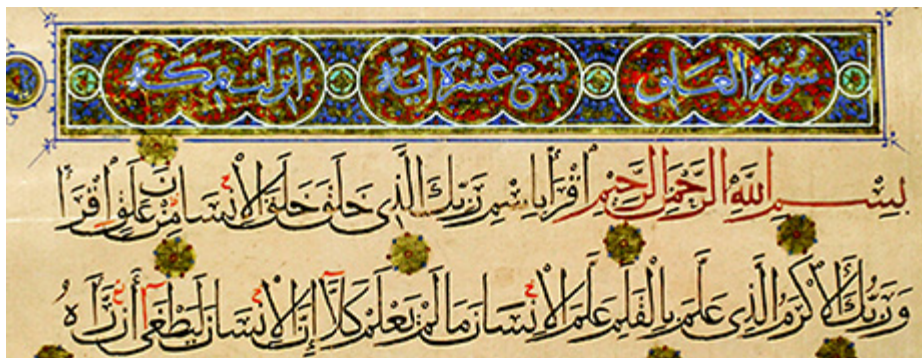 سورة العلق تسع عشرة آية أنزلت بمكة
بِسْمِ اللَّهِ الرَّحْمَٰنِ الرَّحِيمِ اقْرَأْ بِاسْمِ رَبِّكَ الَّذِي خَلَقَ خَلَقَ الْإِنْسَانَ مِنْ عَلَقٍ اقْرَأْ
وَرَبُّكَ الْأَكْرَمُ الَّذِي عَلَّمَ بِالْقَلَمِ عَلَّمَ الْإِنْسَانَ مَا لَمْ يَعْلَمْ كَلَّا إِنَّ الْإِنْسَانَ لَيَطْغَى أَنْ رَآهُ